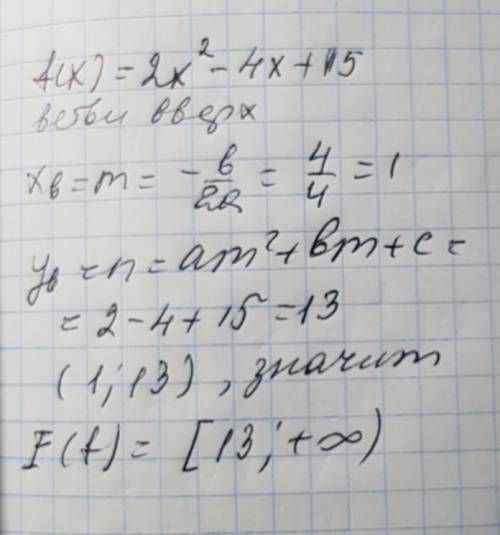 f(x) = 2x² - 4x + 15
ветви вверх
xв = m = - в/2a = 4/4 = 1
yв = n = am² + вm + c =
= 2 - 4 + 15 = 13
(1; 13), значит
E(f) = [13; +∞)